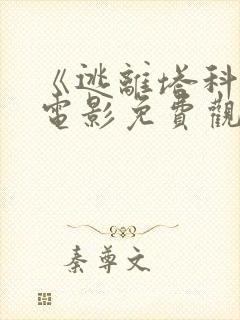 《逃離塔科
電影免費觀
秦尊文